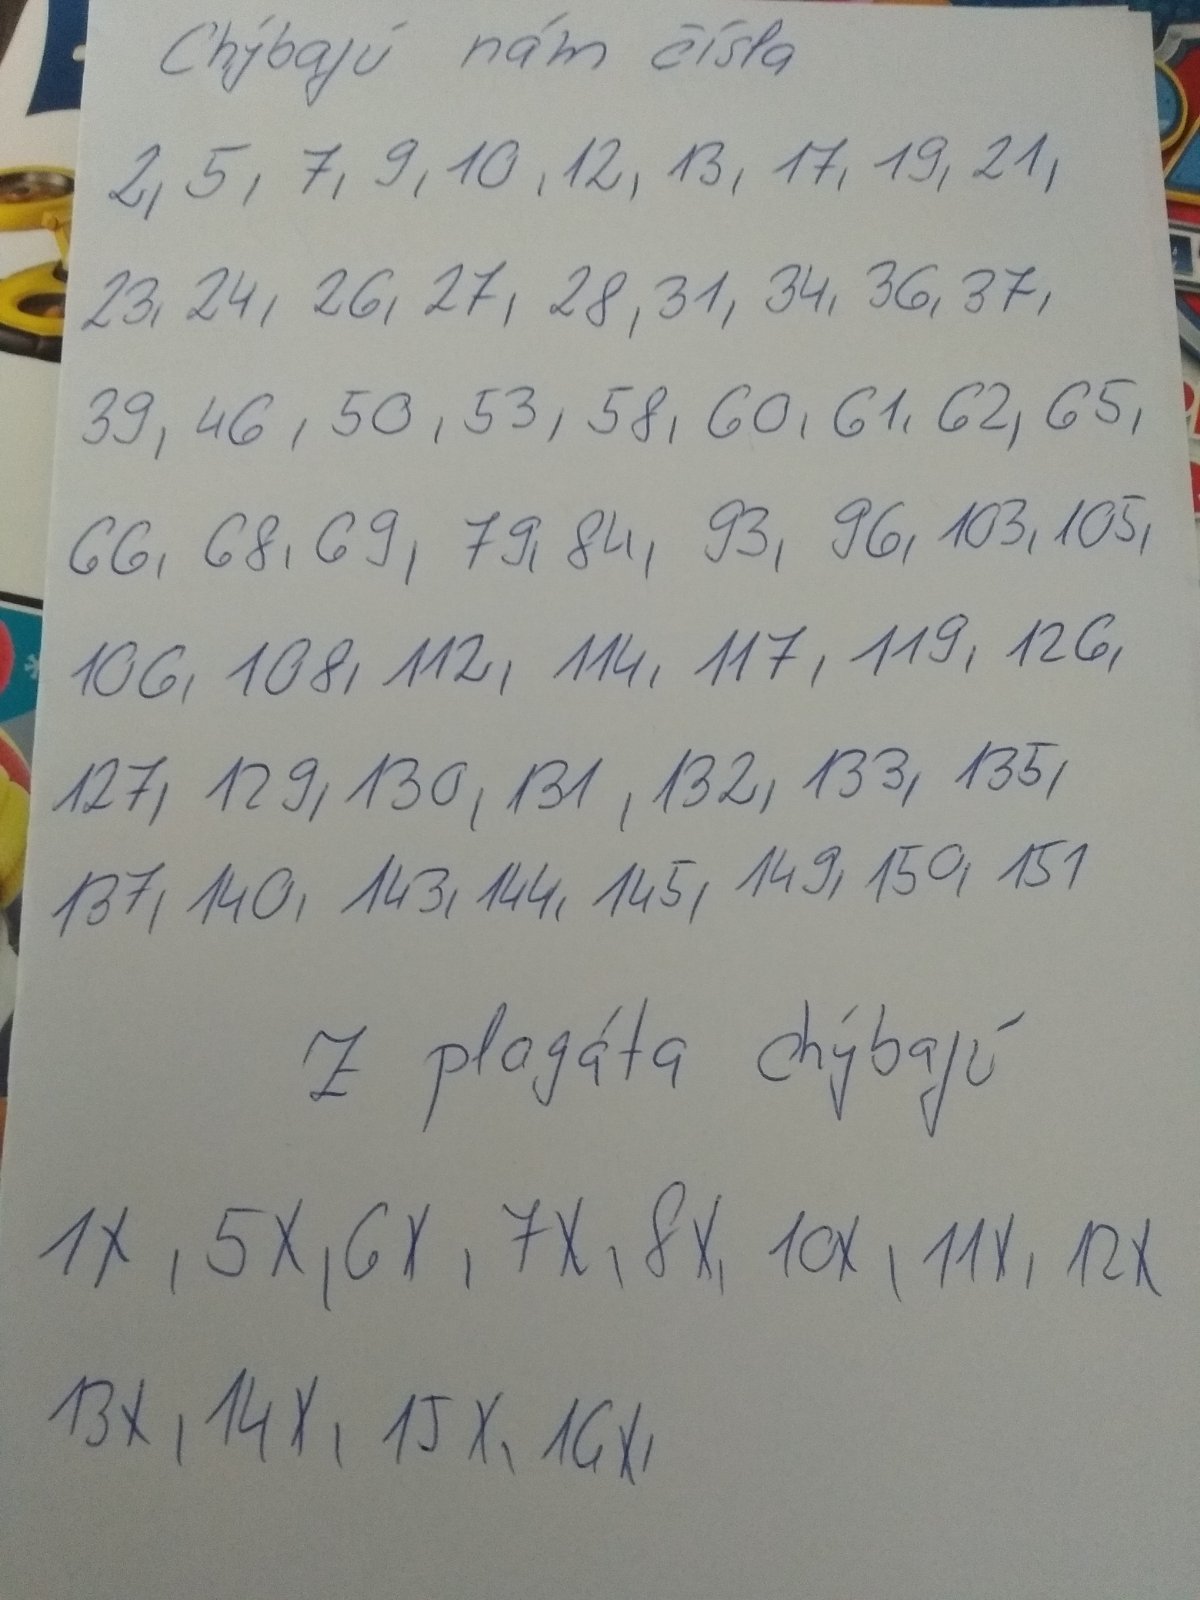 Chýbajú nám čísla
2, 5, 7, 9, 10, 12, 13, 17, 19, 21,
23, 24, 26, 27, 28, 31, 34, 36, 37,
39, 46, 50, 53, 58, 60, 61, 62, 65,
66, 68, 69, 79, 84, 93, 96, 103, 105,
106, 108, 112, 114, 117, 119, 126,
127, 129, 130, 131, 132, 133, 135,
137, 140, 143, 144, 145, 149, 150, 151
Z plagáta chýbajú
1X, 5X, 6X, 7X, 8X, 10X, 11X, 12X
13X, 14X, 15X, 16X,